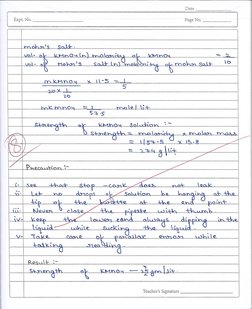 Date
Expt. No.
Page No.
mohr's salt.
vol. of KMnO4 (n) molarity of KMnO4 = 2
vol. of mohr's salt (n) molarity of mohr salt 10
mKMnO4 × 11.5 = 1
20 × 1 5
20
mKMnO4 = 1 mole/lit
57.5
Strength of KMnO4 solution :-
Strength = molarity × molar mass
= 1/57.5 × 15.8
= 2.74 g/lit
8
Precaution :-
i- See that stop-cork does not leak
ii- Let no drops of solution be hanging at the
tip of the burette at the end point
iii- Never close the pipette with thumb
iv- Keep the lower end always dipping in the
liquid while sucking the liquid.
v- Take care of parallax error while
taking reading.
Result :-
Strength of KMnO4 — gm/lit
Teacher's Signature